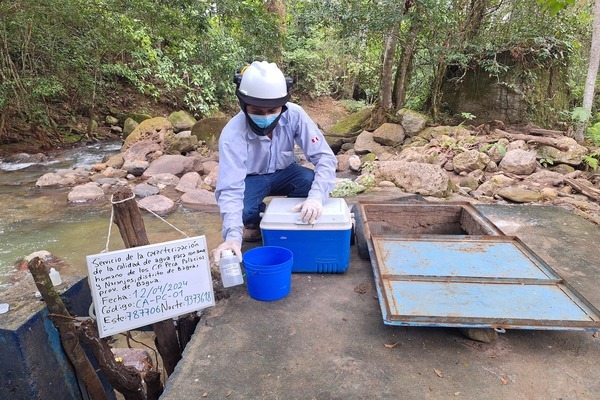 Servicio de la Caracterización
de la calidad de agua para consumo
humano de los C.P. Peca Palacios
y Naranjos, distrito de Bagua,
prov. de Bagua.
Fecha: 12/04/2024
Código: CA-PC-01
Este: 787706 Norte: 9373618